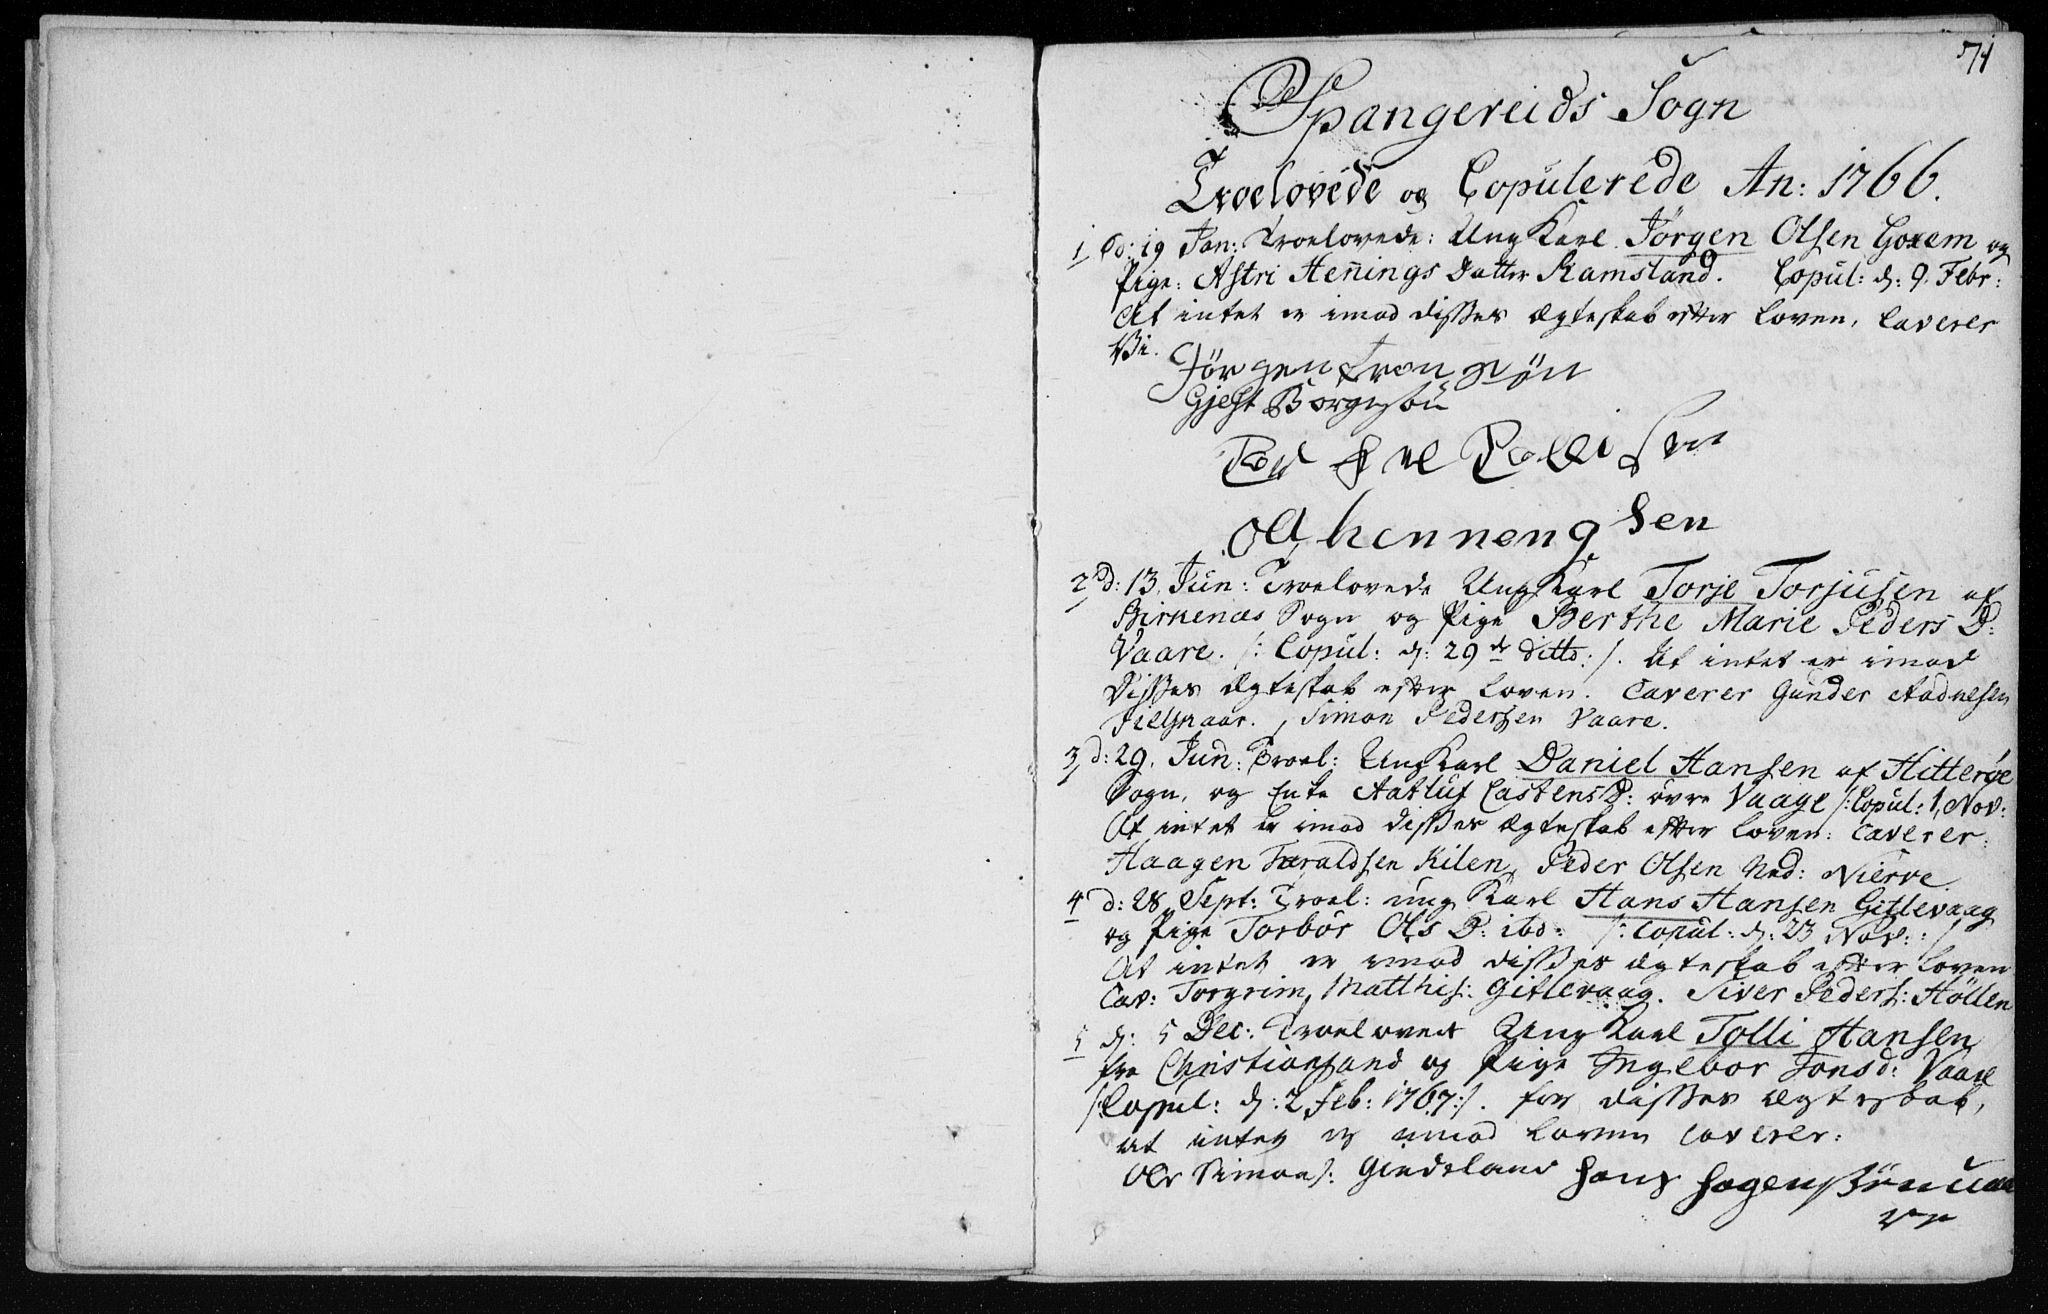 71
Spangereids Sogn
Troelovede og Copulerede An: 1766.
1 D: 19 Jan: Troelovede: Ung Karl Jørgen Olsen Goxem og
Pige: Astri Hennings Datter Ramsland. Copul: d: 9. Febr:
At intet er imod disses Ægteskab efter Loven, Caverer
Vi.
Jørgen Tron søn
Gjest Børgeson
Tollisen
hennengsen
2 d: 13. Jun: Troelovede Ung Karl Torje Torjusen af
Birkenæs Sogn og Pige Berthe Marie Peders D:
Vaare. /: Copul: d: 29 de ditto :/. At intet er imod
Disses Ægteskab efter Loven. Caverer Gunder Aadnesen
Fielsnaar. , Simon Pedersen Vaare.
3 d: 29. Jun: Troel: Ung Karl Daniel Hansen af Hitterøe
Sogn, og Enke Aatluf Castens D: øvre Vaage /: Copul: 1. Nov:
At intet er imod disses Ægteskab efter Loven: Caverer:
Haagen Taraldsen Kilen, Peder Olsen Ned: Nierve
4 d: 28 Sept: Troel: ung Karl Hans Hansen Gitlevaag
og Pige Torbor Ols D: ibd: /: Copul: d: 23 Nov: :/
At intet er imod disses Ægteskab efter Loven
Cav: Torgrim Matthis: Gitlevaag. Siver Peders: Høllen
5 d: 5 Dec: Troelovet Ung Karl Tolli Hansen
fra Christiansand og Pige Ingebor Jonsd: Vaare
/: Copul: d: 2 Feb: 1767 :/. for disses Ægteskab,
at intet er imod Loven Caverer:
Ole Simons: Giedsland Hans Hagensøn